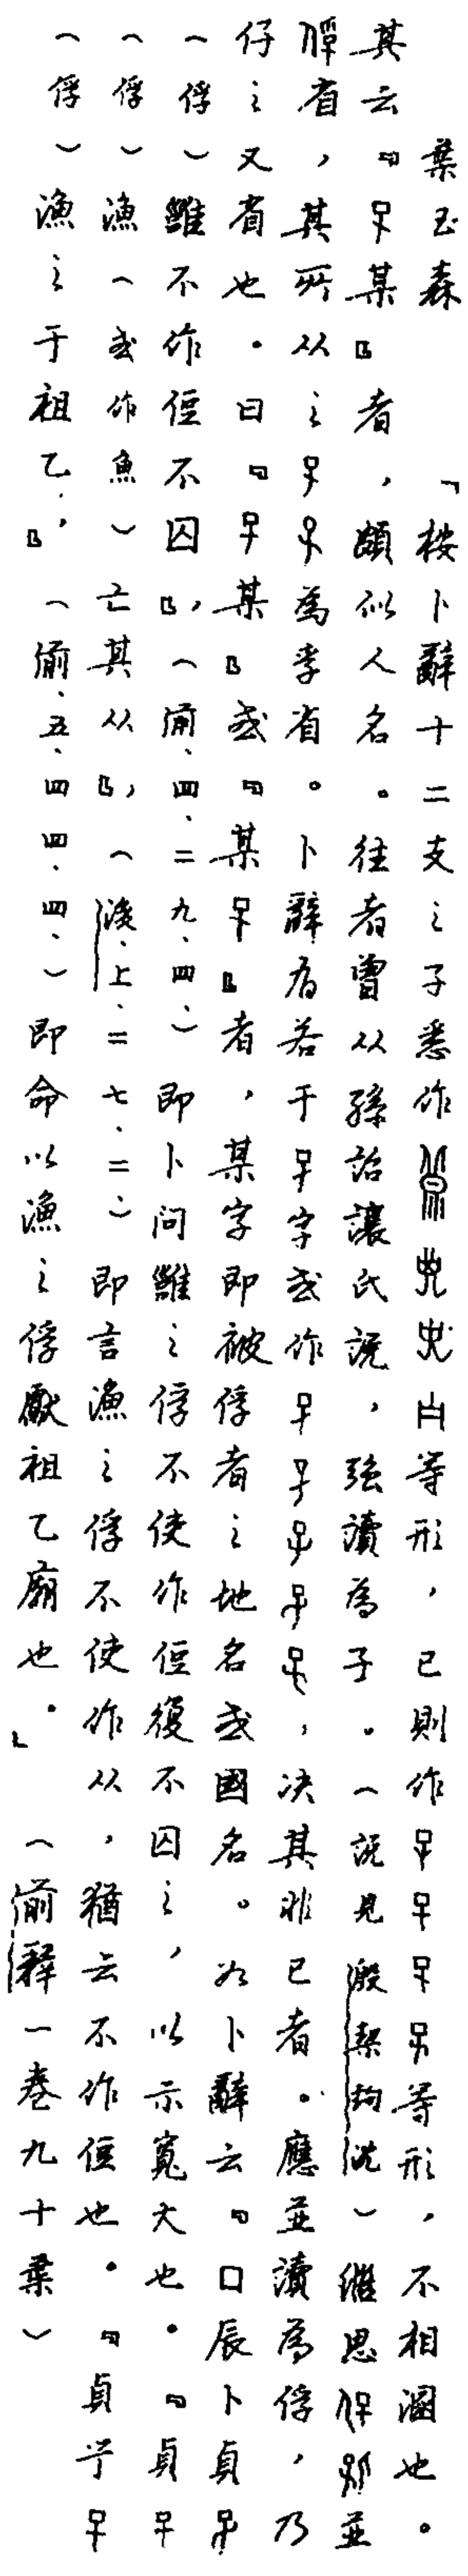 葉玉森　「桉卜辭十二支之子悉作等形，巳則作等形，不相溷也。
其云『某』者，頗似人名。往者曾从孫詒讓氏說，強讀為子。（說見殷契拘沈）繼思並
省，其所从之為孚省。卜辭有若干字或作，决其非巳者。應並讀為俘，乃
仔之又省也。曰『某』或『某』者，某字即被俘者之地名或國名。如卜辭云『囗辰卜貞
（俘）雝不作侸不囚』，（前、四、二九、四、）即卜問雝之俘不使作侸復不囚之，以示寬大也。『貞
（俘）漁（或作魚）亡其从』，（後、上、二七、二）即言漁之俘不使作从，猶云不作侸也。『貞
（俘）漁之于祖乙，』（前、五、四四、四、）即命以漁之俘獻祖乙廟也。」（前釋一卷九十葉）